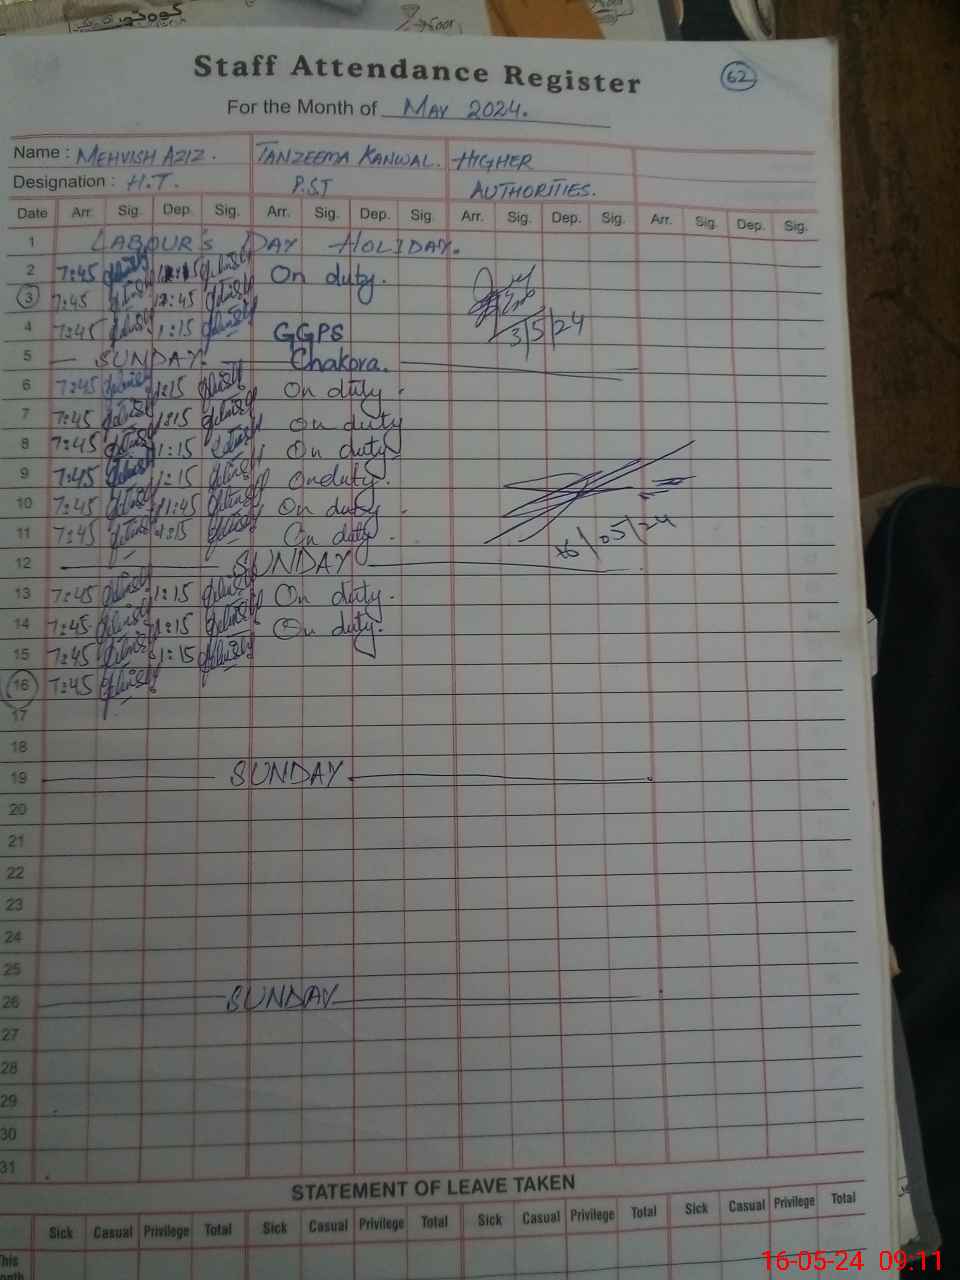 Staff Attendance Register
62
For the Month of MAY 2024.
Name : MEHVISH AZIZ. TANZEEMA KANWAL. HIGHER
Designation : H.T. P.S.T AUTHORITIES.
Date Arr. Sig. Dep. Sig. Arr. Sig. Dep. Sig. Arr. Sig. Dep. Sig. Arr. Sig. Dep. Sig.
1 LABOUR's DAY HOLIDAY.
2 7:45 On duty.
3 7:45 11:45
4 7:45 1:15 GGPS 3/5/24
5 SUNDAY. Chakora.
6 7:45 1:15 On duty.
7 7:45 1:15 On duty
8 7:45 1:15 On duty
9 7:45 1:15 On duty.
10 7:45 11:45 On duty.
11 7:45 1:15 On duty. 16/05/24
12 SUNDAY
13 7:45 1:15 On duty.
14 7:45 1:15 On duty.
15 7:45 1:15
16 7:45
17
18
19 SUNDAY
20
21
22
23
24
25
26 SUNDAY
27
28
29
30
31
STATEMENT OF LEAVE TAKEN
Sick Casual Privilege Total Sick Casual Privilege Total Sick Casual Privilege Total Sick Casual Privilege Total
This
16-05-24 09:11